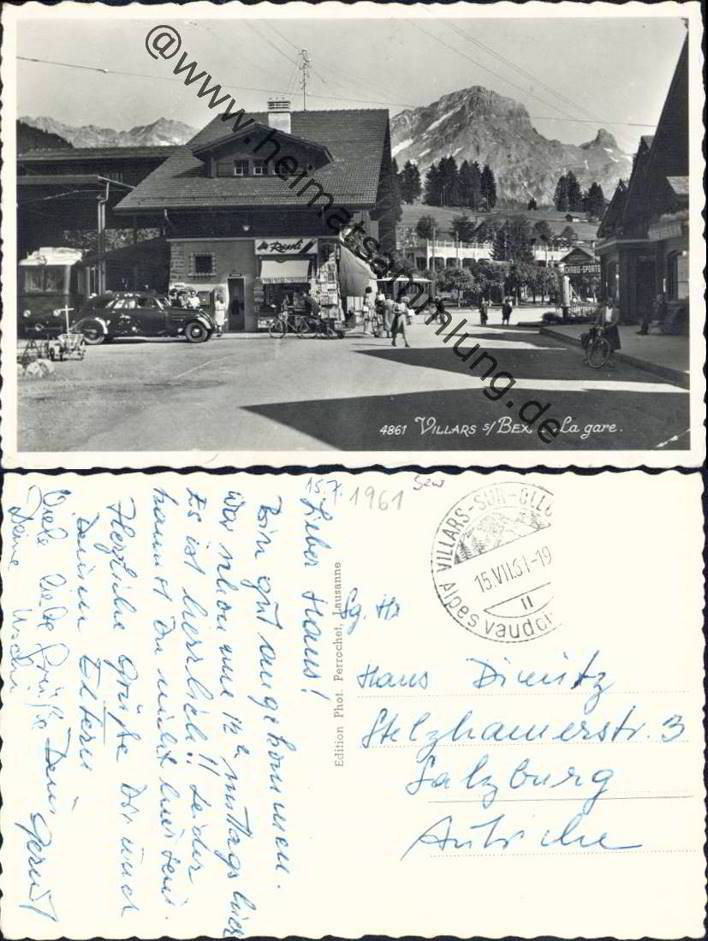 @www.heimatsammlung.de
Resordi
CHAUS-SPORTS
4861 VILLARS s/ BEX. La gare.
15.7.
1961
Lieber Hans!
Bin gut angekommen.
War schon um 12h mittags hier
Es ist herrlich!! Leider
kannst Du nicht hier sein.
Herzliche Grüße Dir und
Deinen Eltern
Viele liebe Grüße Dein Gernot
Deine Uschi
Edition Phot. Perrochet, Lausanne
VILLARS-SUR-OLLO
15.VII.61-19
11
Alpes vaudois
Sg. Hr
Hans Dimitz
Stelzhamerstr. 3
Salzburg
Autriche